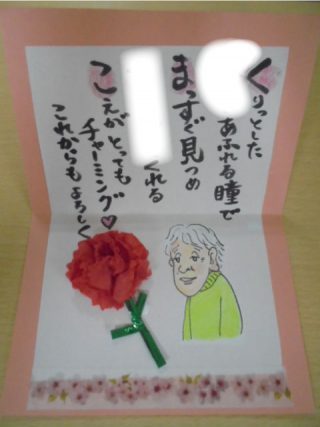 くりっとした
あふれる瞳で
まっすぐ見つめ
くれる
こえがとっても
チャーミング♡
これからもよろしく